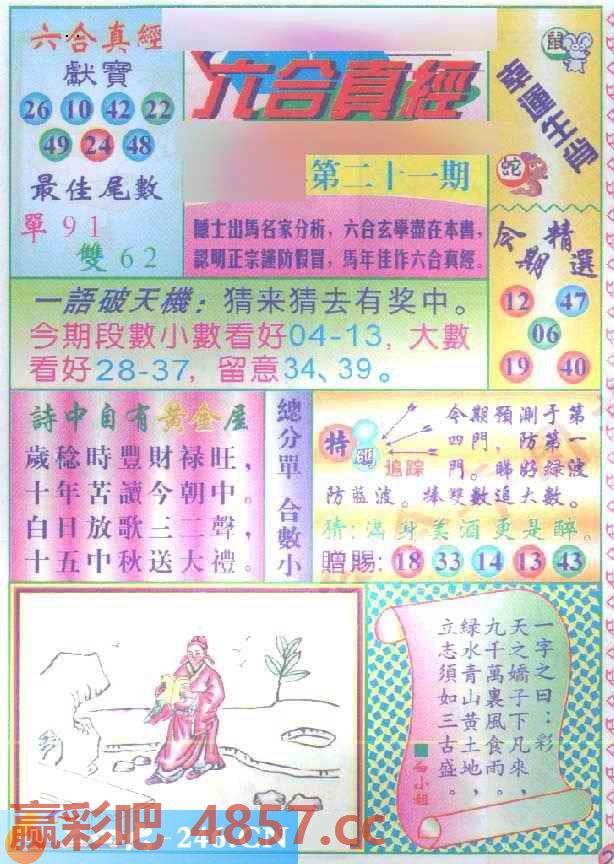 六合真經
獻寶
26 10 42 22
49 24 48
最佳尾數
單91
雙62
六合真經
第二十一期
隱士出馬名家分析，六合玄學盡在本書，
認明正宗謹防假冒，馬年佳作六合真經。
鼠
幸運生肖
蛇
今期精選
12 47
06
19 40
一語破天機：猜来猜去有奖中。
今期段數小數看好04-13，大數
看好28-37，留意34、39。
詩中自有黃金屋
歲稔時豐財禄旺，
十年苦讀今朝中。
白日放歌三二聲，
十五中秋送大禮。
總分單 合數小
特
碼
追踪
今期預測于第
四門，防第一
門。睇好綠波
防藍波。捧雙數追大數。
猜：滿身美酒更是醉。
贈賜：18 33 14 13 43
一字之曰：彩
天之嬌子下凡來，
九千萬裏風食雨。
緑水青山黄土地，
立志須如三古盛。
小組
赢彩吧 4857.cc
246.CN